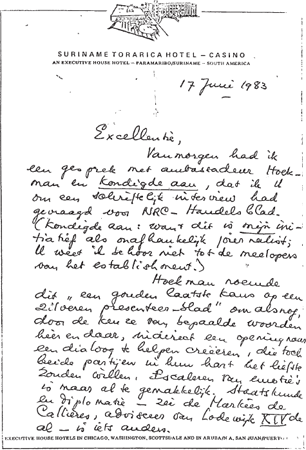 SURINAME TORARICA HOTEL – CASINO
AN EXECUTIVE HOUSE HOTEL – PARAMARIBO/SURINAME – SOUTH AMERICA
17 Juni 1983
Excellentie,
Vanmorgen had ik
een gesprek met ambassadeur Hoek-
man en kondigde aan, dat ik U
om een schriftelijk interview had
gevraagd voor NRC-Handelsblad.
(Kondigde aan: want dit is mijn ini-
tiatief als onafhankelijk journalist;
U weet ik behoor niet tot de meelopers
van het establishment.)
Hoekman noemde
dit „een gouden laatste kans op een
zilveren presenteer-blad" om alsnog,
door de keuze van bepaalde woorden
hier en daar, indirect een opening naar
een dialoog te helpen creëeren, die toch
beide partijen in hun hart het liefste
zouden willen. Escaleren van emotie's
is maar al te gemakkelijk. Staatskunde
en diplomatie – zei de Markies de
Callières, adviseur van Lodewijk XIV de
al – is iets anders.
EXECUTIVE HOUSE HOTELS IN CHICAGO, WASHINGTON, SCOTTSDALE AND IN ARUBA N. A., SAN JUAN/PUERTO